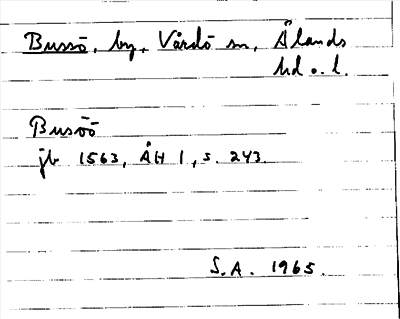 Bussö, by, Vårdö sn, Ålands
hd o. l.
Busöö
jb 1563, ÅH 1, s. 243.
S.A. 1965.